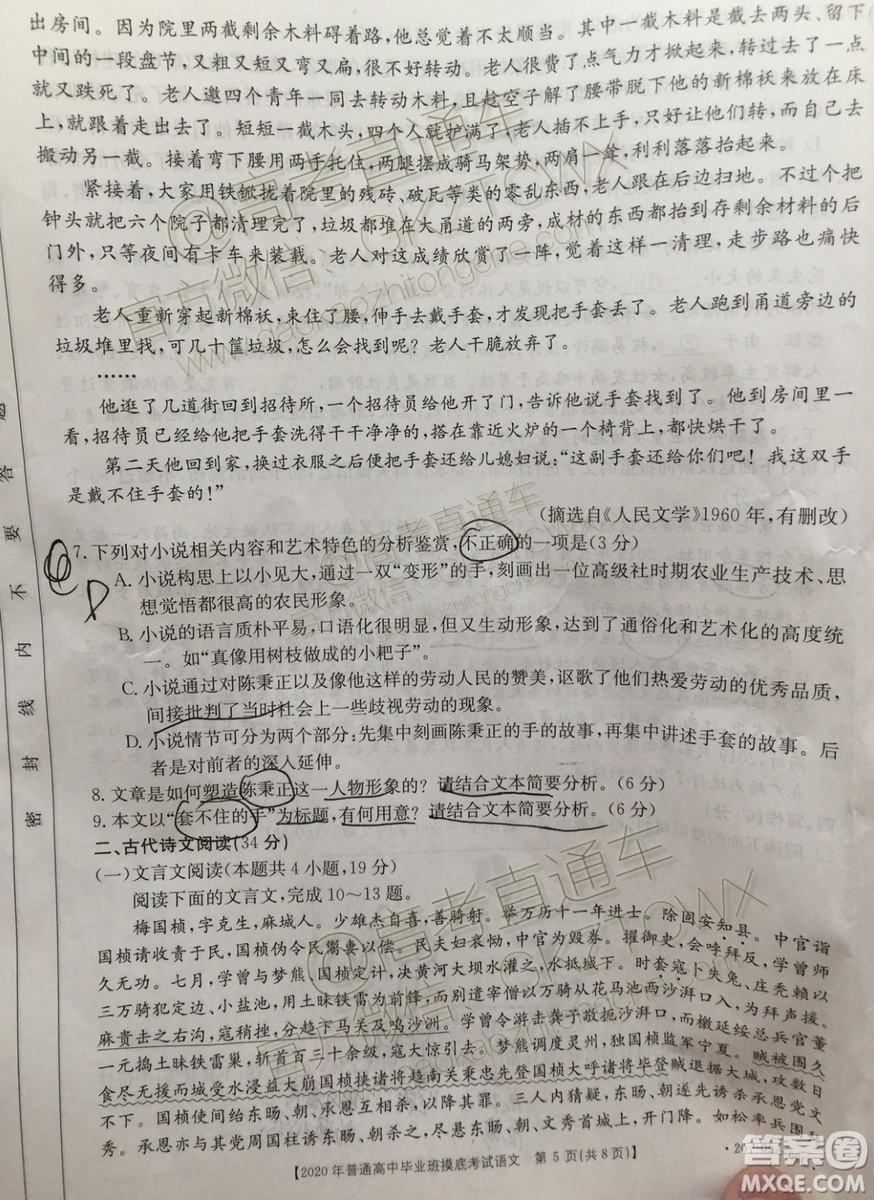 出房间。因为院里两截剩余木料碍着路,他总觉着不太顺当。其中一截木料是截去两头、留下
中间的一段盘节,又粗又短又弯又扁,很不好转动。老人很费了点气力才掀起来,转过去了一点
就又跌死了。老人邀四个青年一同去转动木料,且趁空子解了腰带脱下他的新棉袄来放在床
上,就跟着走出去了。短短一截木头,四个人就护满了,老人插不上手,只好让他们转,而自己去
搬动另一截。接着弯下腰用两手托住,两腿摆成骑马架势,两肩一耸,利利落落抬起来。
紧接着,大家用铁锨拢着院里的残砖、破瓦等类的零乱东西,老人跟在后边扫地。不过个把
钟头就把六个院子都清理完了,垃圾都堆在大甬道的两旁,成材的东西都抬到存剩余材料的后
门外,只等夜间有卡车来装载。老人对这成绩欣赏了一阵,觉着这样一清理,走步路也痛快
得多。
老人重新穿起新棉袄,束住了腰,伸手去戴手套,才发现把手套丢了。老人跑到甬道旁边的
垃圾堆里找,可几十筐垃圾,怎么会找到呢?老人干脆放弃了。
……
他逛了几道街回到招待所,一个招待员给他开了门,告诉他说手套找到了。他到房间里一
看,招待员已经给他把手套洗得干干净净的,搭在靠近火炉的一个椅背上,都快烘干了。
第二天他回到家,换过衣服之后便把手套还给儿媳妇说:“这副手套还给你们吧!我这双手
是戴不住手套的!”
(摘选自《人民文学》1960年,有删改)
7.下列对小说相关内容和艺术特色的分析鉴赏,不正确的一项是(3分)
A.小说构思上以小见大,通过一双“变形”的手,刻画出一位高级社时期农业生产技术、思
想觉悟都很高的农民形象。
B.小说的语言质朴平易,口语化很明显,但又生动形象,达到了通俗化和艺术化的高度统
一。如“真像用树枝做成的小耙子”。
C.小说通过对陈秉正以及像他这样的劳动人民的赞美,讴歌了他们热爱劳动的优秀品质,
间接批判了当时社会上一些歧视劳动的现象。
D.小说情节可分为两个部分:先集中刻画陈秉正的手的故事,再集中讲述手套的故事。后
者是对前者的深入延伸。
D
8.文章是如何塑造陈秉正这一人物形象的?请结合文本简要分析。(6分)
9.本文以“套不住的手”为标题,有何用意?请结合文本简要分析。(6分)
二、古代诗文阅读(34分)
(一)文言文阅读(本题共4小题,19分)
阅读下面的文言文,完成10~13题。
梅国桢,字克生,麻城人。少雄杰自喜,善骑射。举万历十一年进士。除固安知县。中官诣
国桢请收责于民,国桢伪令民鬻妻以偿。民夫妇哀恸,中官为毁券。擢御史,会哱拜反,学曾师
久无功。七月,学曾与梦熊、国桢定计,决黄河大坝水灌之,水抵城下。时套寇卜失兔、庄秃赖以
三万骑犯定边、小盐池,用土昧铁雷为前锋,而别遣宰僧以万骑从花马池西沙湃口入,为拜声援。
麻贵击之右沟,寇稍挫,分趋下马关及鸣沙洲。学曾令游击龚子敬扼沙湃口,而檄延绥总兵官董
一元捣土昧铁雷巢,斩首百三十余级,寇大惊引去。梦熊调度灵州,独国桢监军宁夏。贼被围久
食尽无援而城受水浸益大崩国桢挟诸将趋南关秉忠先登国桢大呼诸将毕登贼退据大城,攻数日
不下。国桢使间给东旸、朝、承恩互相杀,以降其罪。三人内猜疑,东旸、朝杀承恩党文
秀。承恩亦与其党周国柱诱东旸、朝杀之,尽悬东旸、朝、文秀首城上,开门降。如松率兵
密封线内不要答题
【2020年普通高中毕业班摸底考试语文 第5页(共8页)】
官方微信:
@高考直通车
答案圈
MXQE.COM